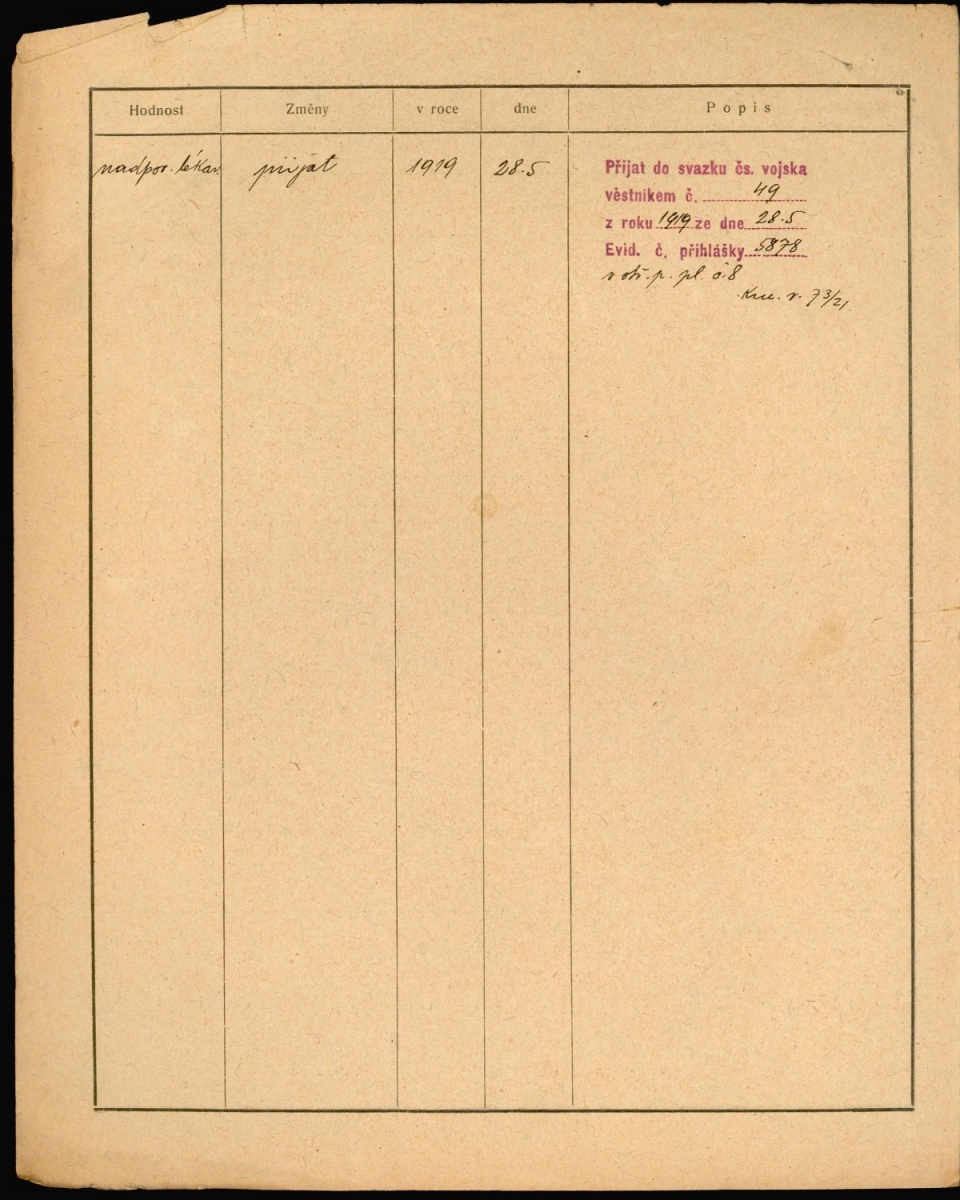 Hodnost Změny v roce dne Popis
nadpor. lékař. přijat 1919 28.5 Přijat do svazku čs. vojska
věstníkem č. 49
z roku 1919 ze dne 28.5
Evid. č. přihlášky 5878
p. pl. č. 8
r. 73/21